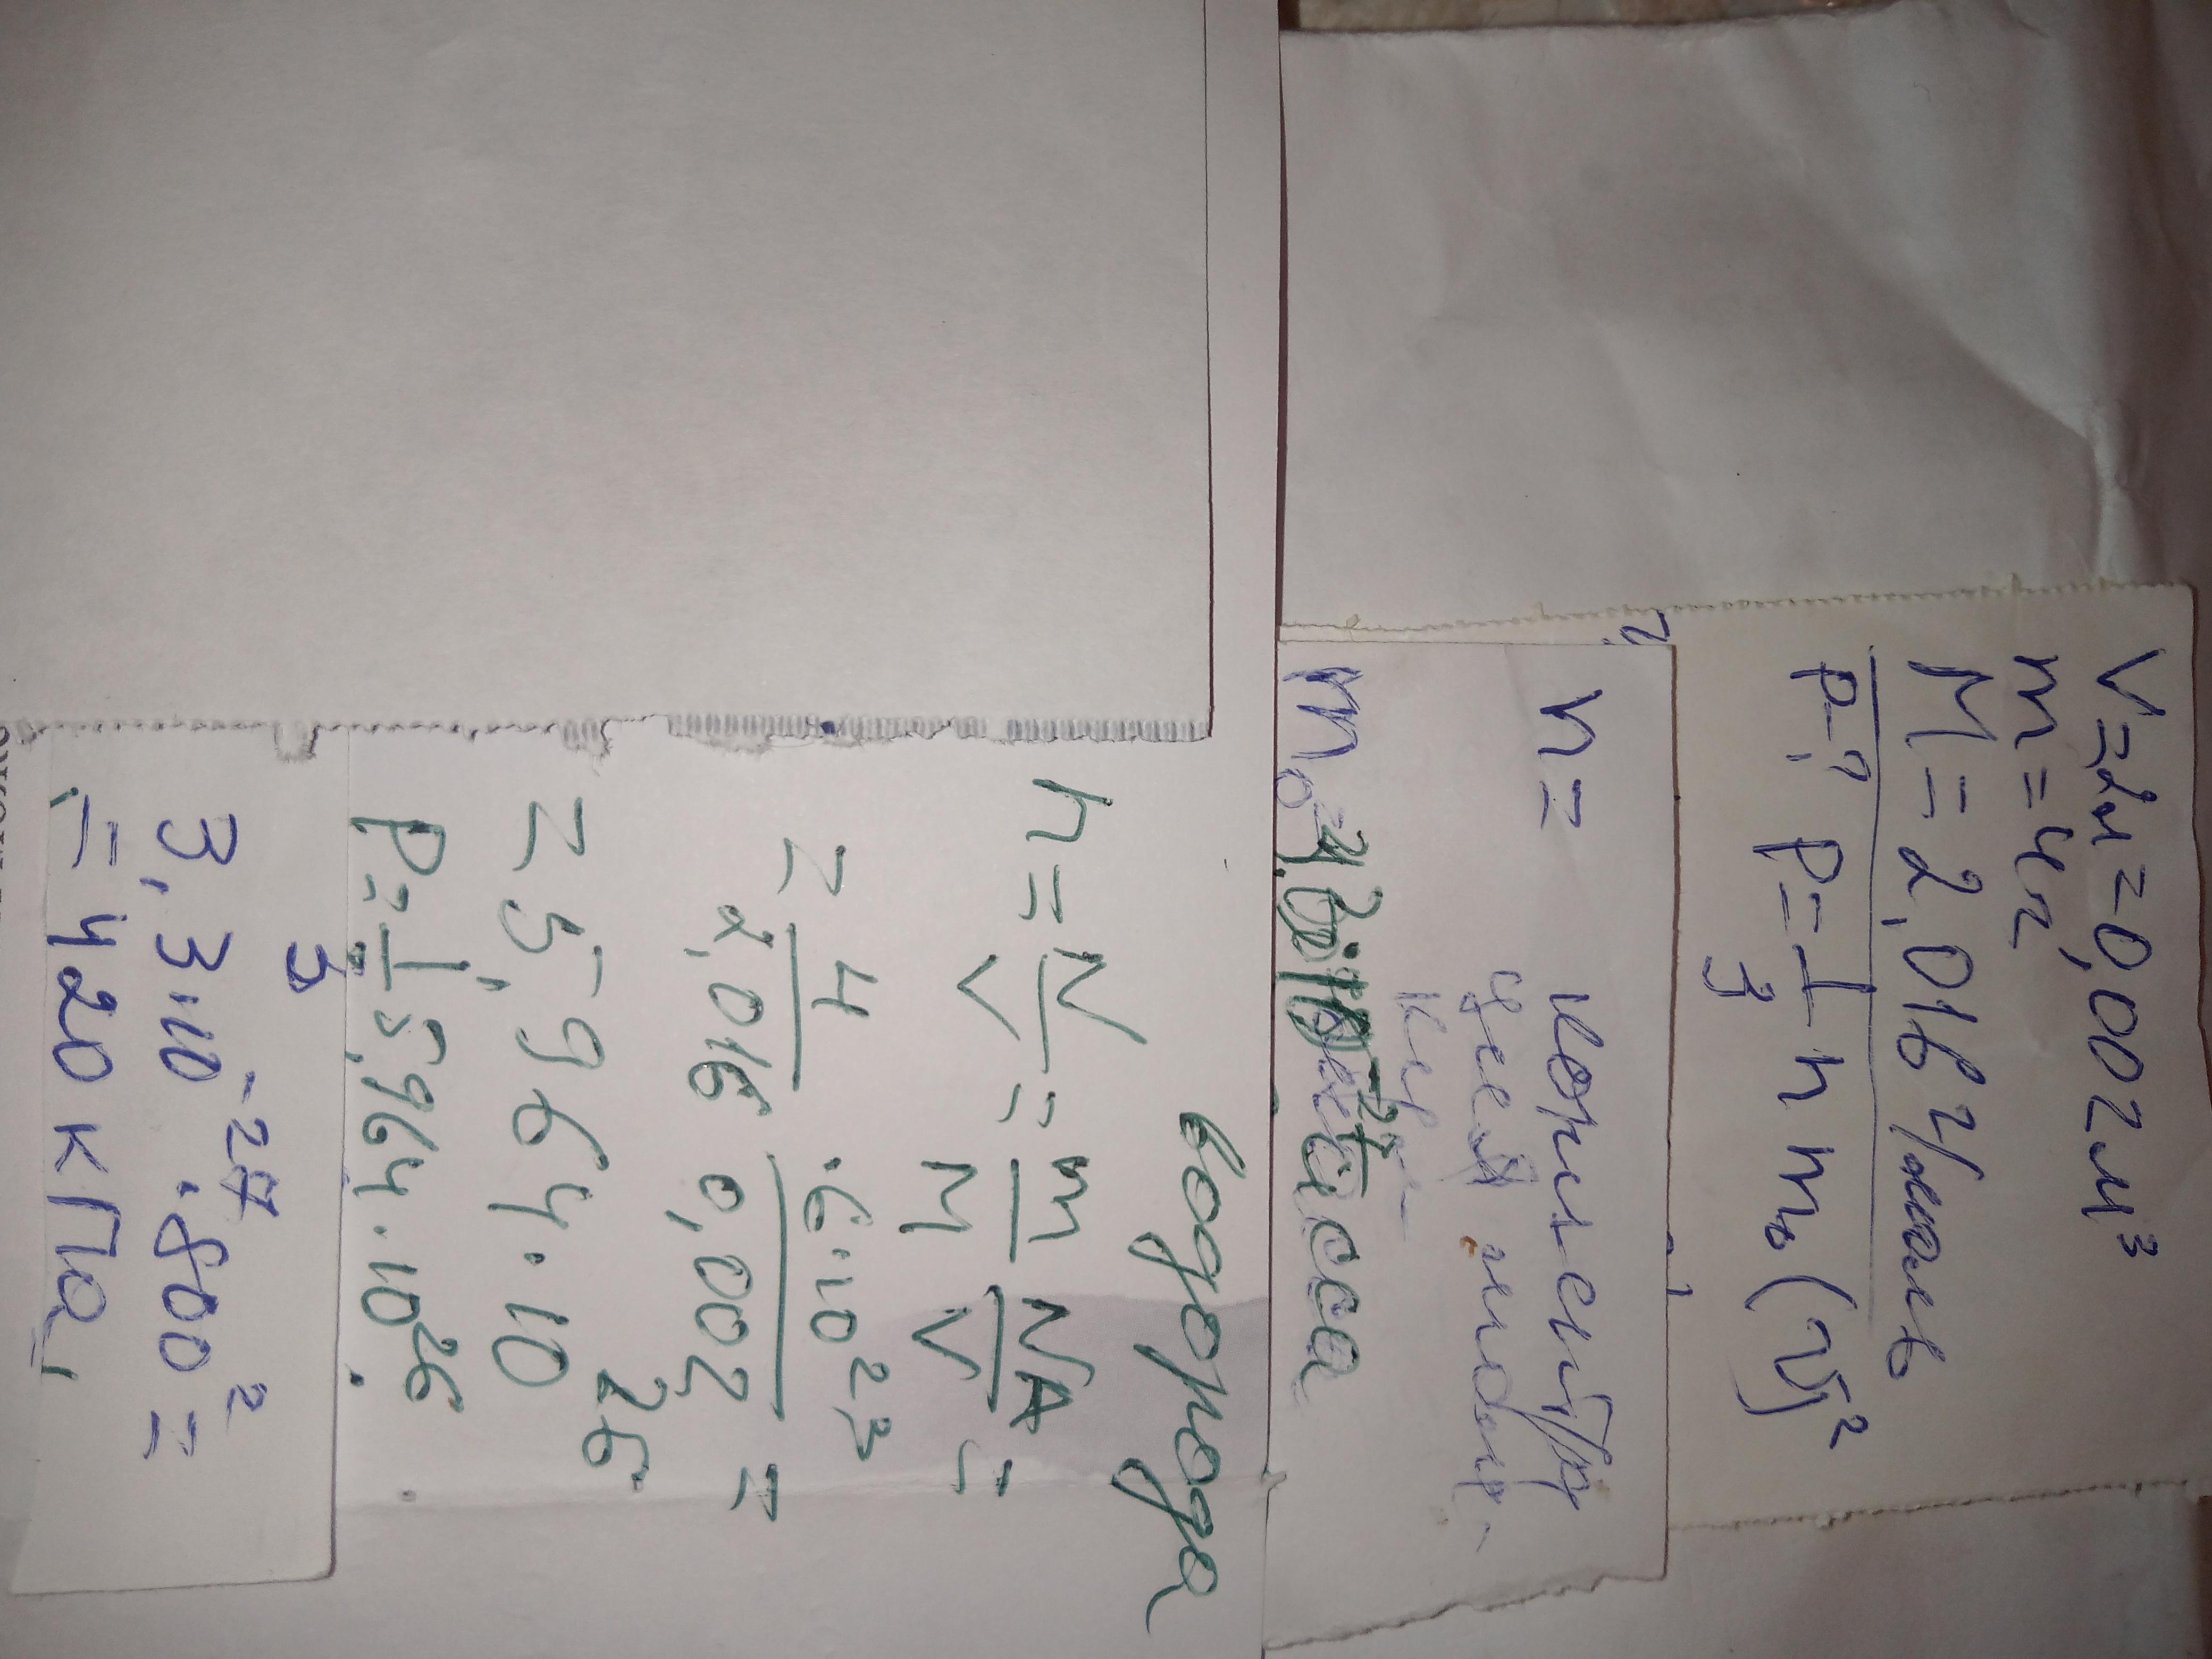 V=2л=0,002м³
m=4г
M=2,016 г/моль
p-? p=1/3 n m₀(v̄)²
n= концентра
ция молек
m₀=3,3·10⁻²⁷ масса
водорода
n=N/V=m/M N_A/V=
=4/2,016·6·10²³/0,002=
=5,964·10²⁶
p=1/3 5,964·10²⁶·
3,3·10⁻²⁷·800²=
=420 кПа